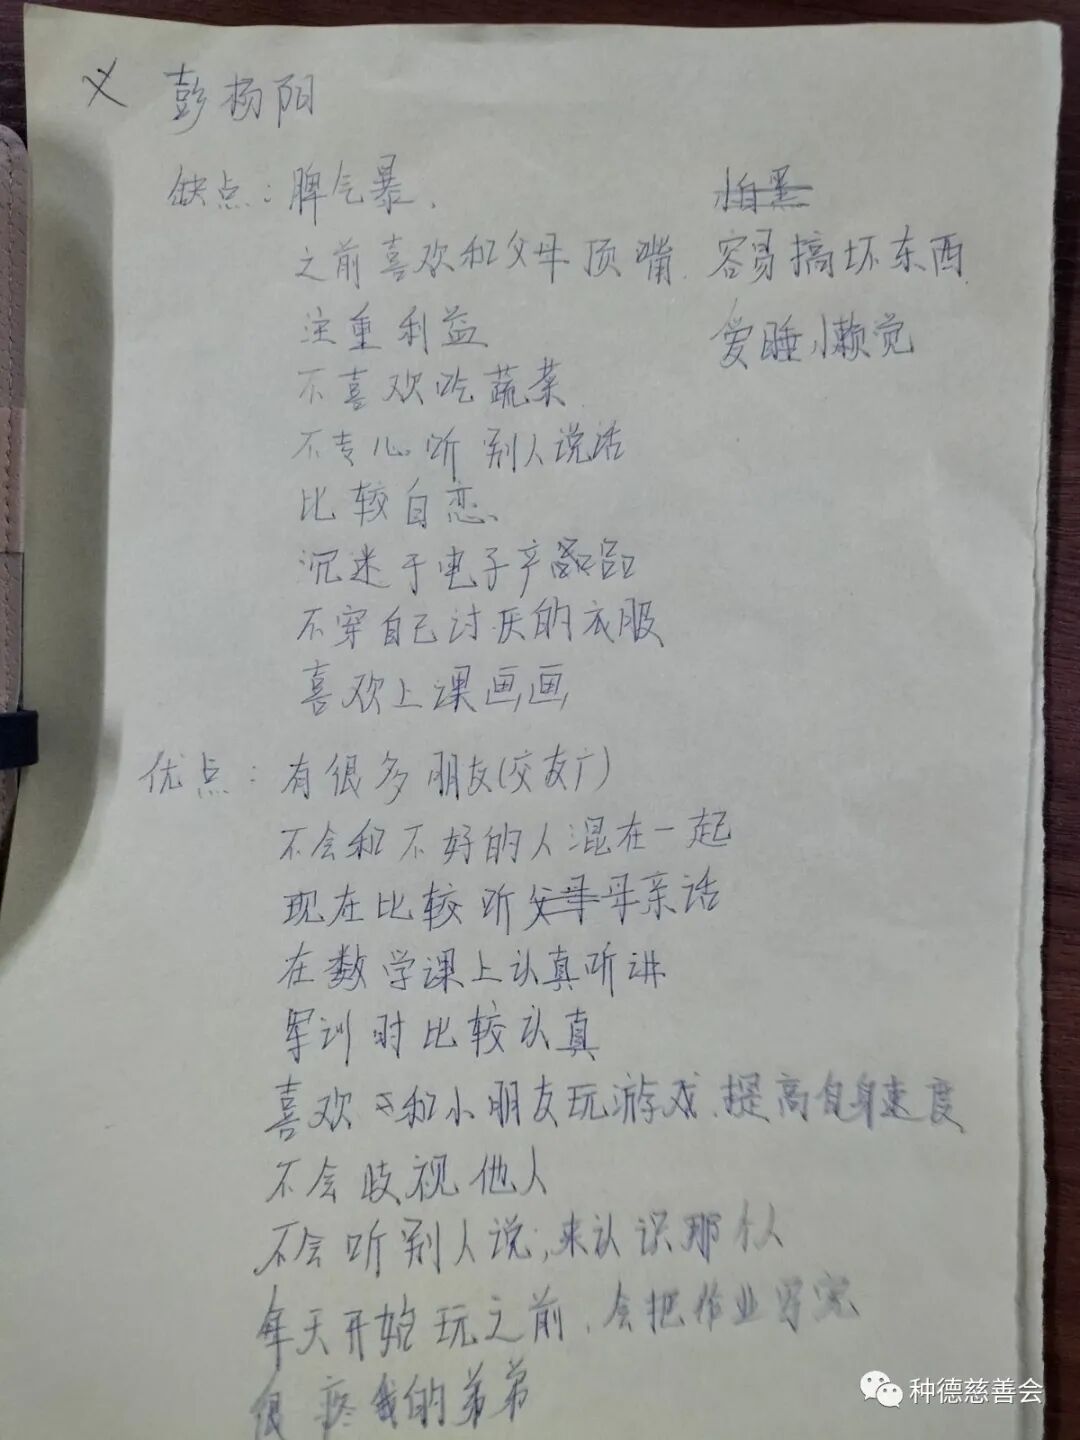 义 彭杨阳
缺点：脾气暴、
之前喜欢和父母顶嘴、
注重利益
不喜欢吃蔬菜
不专心听别人说话
比较自恋、
沉迷于电子产品
不穿自己讨厌的衣服
喜欢上课画画
怕黑
容易搞坏东西
爱睡懒觉
优点：有很多朋友(交友广)
不会和不好的人混在一起
现在比较听父母母亲话
在数学课上认真听讲
军训时比较认真
喜欢和小朋友玩游戏、提高自身速度
不会歧视他人
不会听别人说，来认识那个人
每天开始玩之前，会把作业写完
很疼我的弟弟
种德慈善会